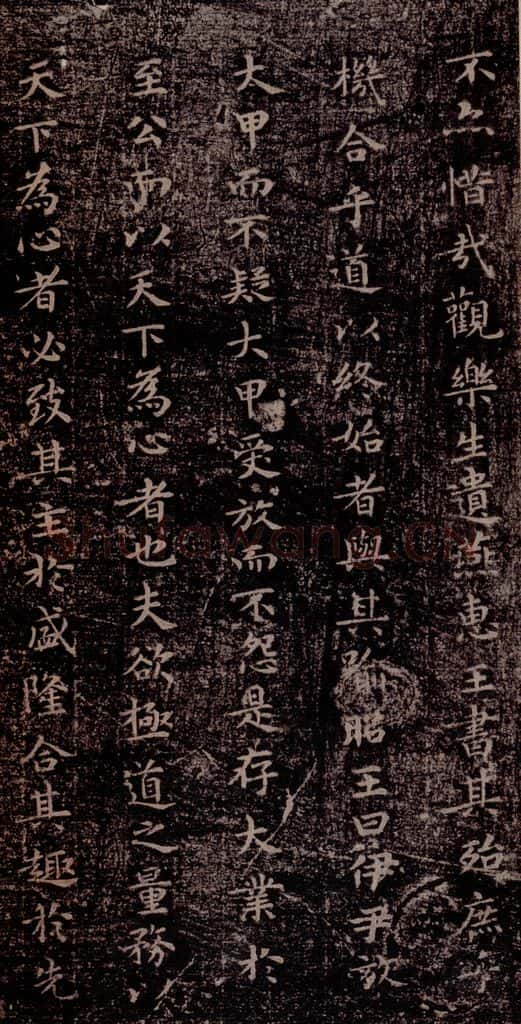 不亦惜哉觀樂生遺燕惠王書其殆庶乎
機合乎道以終始者與其喻昭王曰伊尹放
大甲而不疑大甲受放而不怨是存大業於
至公而以天下為心者也夫欲極道之量務以
天下為心者必致其主於盛隆合其趣於先
shufawang.cn